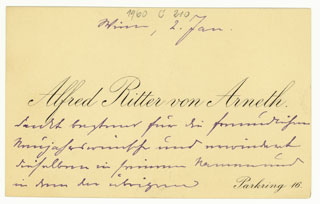 1900 C 210
Wien, 2. Jan.
Alfred Ritter von Arneth.
dankt bestens für die freundlichen
Neujahrswünsche und erwiedert
dieselben in seinem Namen und
in dem der übrigen
Parkring 16.